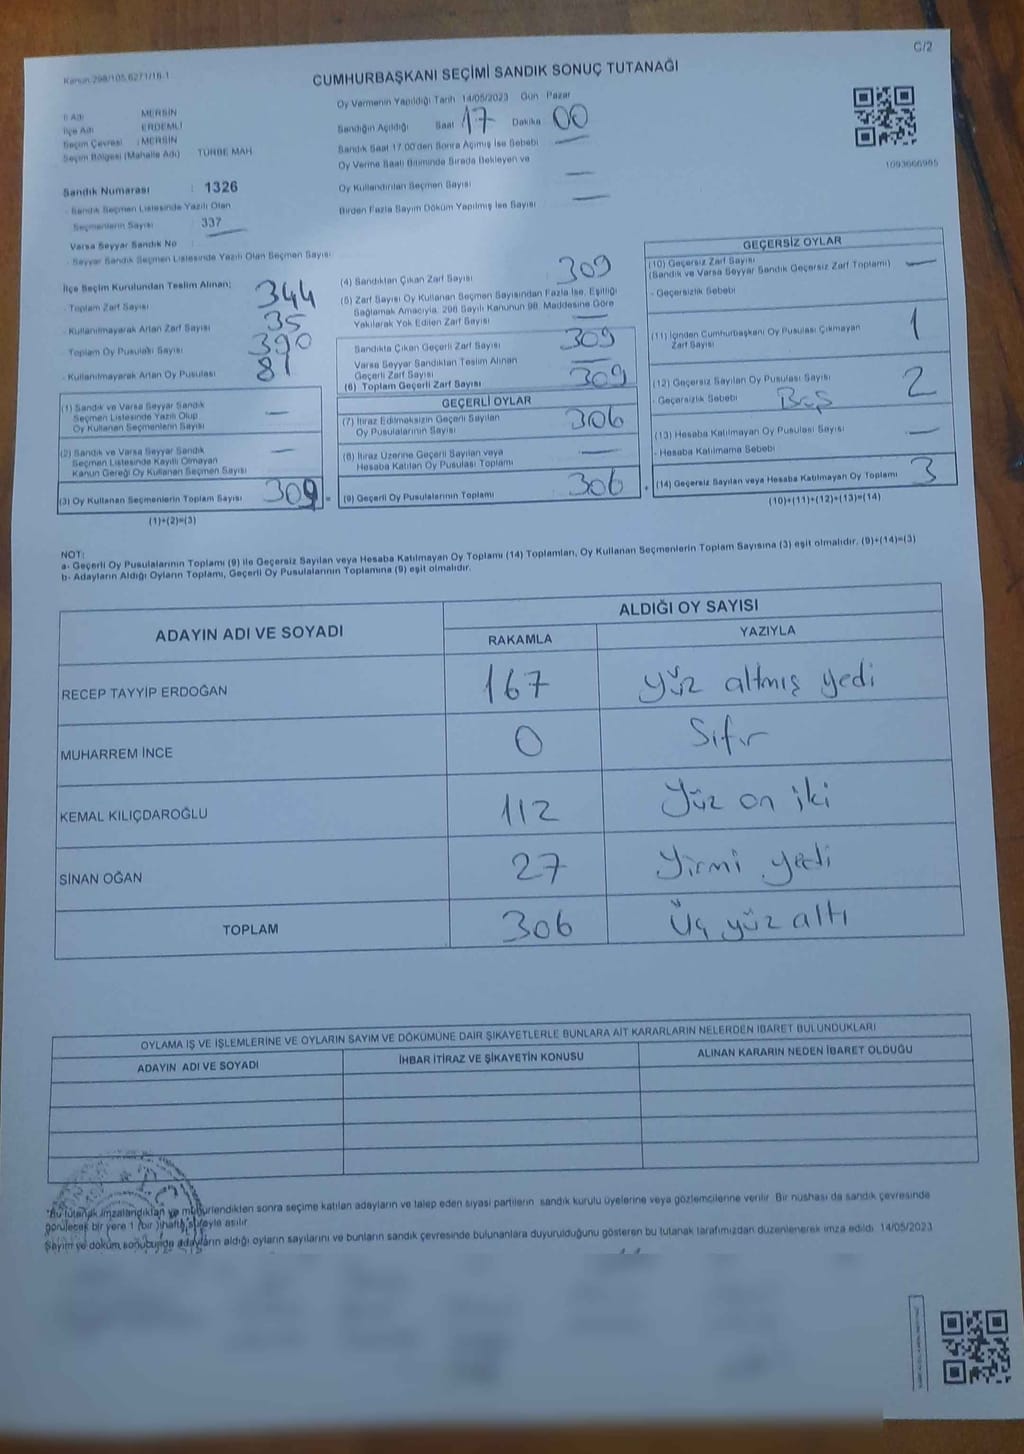 C/2
Kanun:298/105,6271/16-1
CUMHURBAŞKANI SEÇİMİ SANDIK SONUÇ TUTANAĞI
İl Adı : MERSİN
İlçe Adı : ERDEMLİ
Seçim Çevresi : MERSİN
Seçim Bölgesi (Mahalle Adı) TÜRBE MAH.
Sandık Numarası : 1326
- Sandık Seçmen Listesinde Yazılı Olan
Seçmenlerin Sayısı 337
Varsa Seyyar Sandık No :
- Seyyar Sandık Seçmen Listesinde Yazılı Olan Seçmen Sayısı
Oy Vermenin Yapıldığı Tarih 14/05/2023 Gün Pazar
Sandığın Açıldığı Saat 17 Dakika 00
Sandık Saat 17.00'den Sonra Açılmış İse Sebebi —
Oy Verme Saati Bitiminde Sırada Bekleyen ve
Oy Kullandırılan Seçmen Sayısı —
Birden Fazla Sayım Döküm Yapılmış İse Sayısı —
1093666985
İlçe Seçim Kurulundan Teslim Alınan;
- Toplam Zarf Sayısı 344
- Kullanılmayarak Artan Zarf Sayısı 35
Toplam Oy Pusulası Sayısı 390
- Kullanılmayarak Artan Oy Pusulası 81
(1) Sandık ve Varsa Seyyar Sandık
Seçmen Listesinde Yazılı Olup
Oy Kullanan Seçmenlerin Sayısı —
(2) Sandık ve Varsa Seyyar Sandık
Seçmen Listesinde Kayıtlı Olmayan
Kanun Gereği Oy Kullanan Seçmen Sayısı —
(3) Oy Kullanan Seçmenlerin Toplam Sayısı 309
(1)+(2)=(3)
(4) Sandıktan Çıkan Zarf Sayısı 309
(5) Zarf Sayısı Oy Kullanan Seçmen Sayısından Fazla İse, Eşitliği
Sağlamak Amacıyla, 298 Sayılı Kanunun 98. Maddesine Göre
Yakılarak Yok Edilen Zarf Sayısı —
Sandıkta Çıkan Geçerli Zarf Sayısı 309
Varsa Seyyar Sandıktan Teslim Alınan
Geçerli Zarf Sayısı —
(6) Toplam Geçerli Zarf Sayısı 309
GEÇERLİ OYLAR
(7) İtiraz Edilmeksizin Geçerli Sayılan
Oy Pusulalarının Sayısı 306
(8) İtiraz Üzerine Geçerli Sayılan veya
Hesaba Katılan Oy Pusulası Toplamı —
(9) Geçerli Oy Pusulalarının Toplamı 306
GEÇERSİZ OYLAR
(10) Geçersiz Zarf Sayısı
(Sandık ve Varsa Seyyar Sandık Geçersiz Zarf Toplamı) —
- Geçersizlik Sebebi
(11) İçinden Cumhurbaşkanı Oy Pusulası Çıkmayan
Zarf Sayısı 1
(12) Geçersiz Sayılan Oy Pusulası Sayısı 2
- Geçersizlik Sebebi Boş
(13) Hesaba Katılmayan Oy Pusulası Sayısı —
- Hesaba Katılmama Sebebi
(14) Geçersiz Sayılan veya Hesaba Katılmayan Oy Toplamı 3
(10)+(11)+(12)+(13)=(14)
NOT:
a- Geçerli Oy Pusulalarının Toplamı (9) ile Geçersiz Sayılan veya Hesaba Katılmayan Oy Toplamı (14) Toplamları, Oy Kullanan Seçmenlerin Toplam Sayısına (3) eşit olmalıdır. (9)+(14)=(3)
b- Adayların Aldığı Oyların Toplamı, Geçerli Oy Pusulalarının Toplamına (9) eşit olmalıdır.
ADAYIN ADI VE SOYADI ALDIĞI OY SAYISI
RAKAMLA YAZIYLA
RECEP TAYYİP ERDOĞAN 167 yüz altmış yedi
MUHARREM İNCE 0 Sıfır
KEMAL KILIÇDAROĞLU 112 Yüz on iki
SİNAN OĞAN 27 Yirmi yedi
TOPLAM 306 Üç yüz altı
OYLAMA İŞ VE İŞLEMLERİNE VE OYLARIN SAYIM VE DÖKÜMÜNE DAİR ŞİKAYETLERLE BUNLARA AİT KARARLARIN NELERDEN İBARET BULUNDUKLARI
ADAYIN ADI VE SOYADI İHBAR İTİRAZ VE ŞİKAYETİN KONUSU ALINAN KARARIN NEDEN İBARET OLDUĞU
*Bu tutanak imzalandıktan ve mühürlendikten sonra seçime katılan adayların ve talep eden siyasi partilerin sandık kurulu üyelerine veya gözlemcilerine verilir. Bir nüshası da sandık çevresinde
görülecek bir yere 1 (bir) hafta süreyle asılır.
Sayım ve döküm sonucunda adayların aldığı oyların sayılarını ve bunların sandık çevresinde bulunanlara duyurulduğunu gösteren bu tutanak tarafımızdan düzenlenerek imza edildi. 14/05/2023